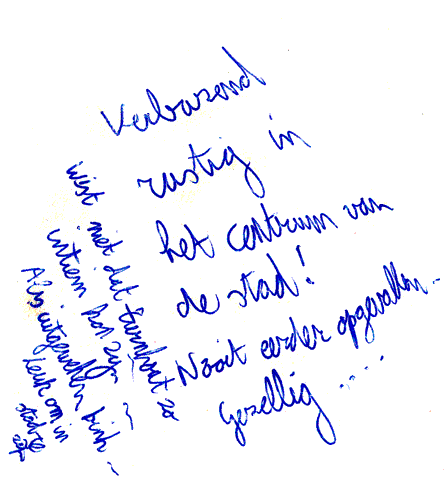 Verbazend
rustig in
het centrum van
de stad!
Nooit eerder opgevallen...
Gezellig .....
wist niet dat Turnhout zo
intiem kon zijn ~
Als uitgeweken
leuk om in